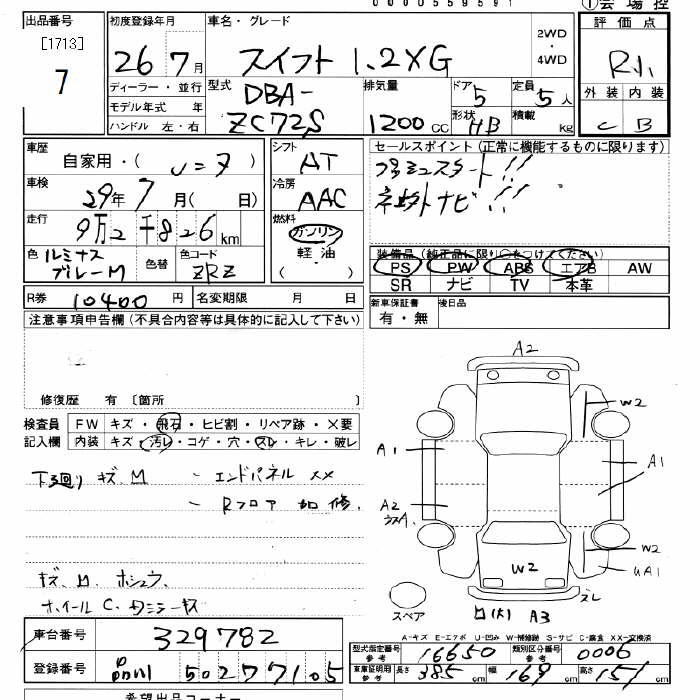 0000559591
①会場控
出品番号
[1713]
7
初度登録年月
26 7月
車名・グレード
スイフト 1.2XG
2WD
・
4WD
評価点
R小
ディーラー・並行
モデル年式 年
ハンドル 左・右
型式
DBA-
ZC72S
排気量
1200cc
ドア
5
形状
HB
定員
5人
積載
kg
外装 内装
C B
車歴
自家用・( )
車検
29年7月( 日)
走行
9万2千826km
色 ルミナス
ブルーM
色替
色コード
ZRZ
シフト
AT
冷房
AAC
燃料
ガソリン
軽・油
( )
セールスポイント(正常に機能するものに限ります)
プッシュスタート!!
ナビ!!
装備品(純正品に限り○をつけてください)
PS PW ABS エアB AW
SR ナビ TV 本革
R券 10400円
名変期限 月 日
新車保証書
有・無
後日品
注意事項申告欄(不具合内容等は具体的に記入して下さい)
修復歴 有〔箇所 〕
検査員
記入欄
FW キズ・飛石・ヒビ割・リペア跡・X要
内装 キズ・汚レ・コゲ・穴・スレ・キレ・破レ
下回り キズ.M - エンドパネル XX
- Rフロア 加修.
キズ.
ホイールC.
A2
W2
A1
A1
A2
ウスA.
W2
W2
UA1
ズレ
A3
スペア
A-キズ E-エクボ U-凹み W-補修跡 S-サビ C-腐食 XX-交換済
車台番号
329782
登録番号
品川 502 77105
型式指定番号
参考
16650
類別区分番号
参考
0006
車庫証明用
参考
長さ 385cm
幅 169cm
高さ 151cm
希望出品コーナー